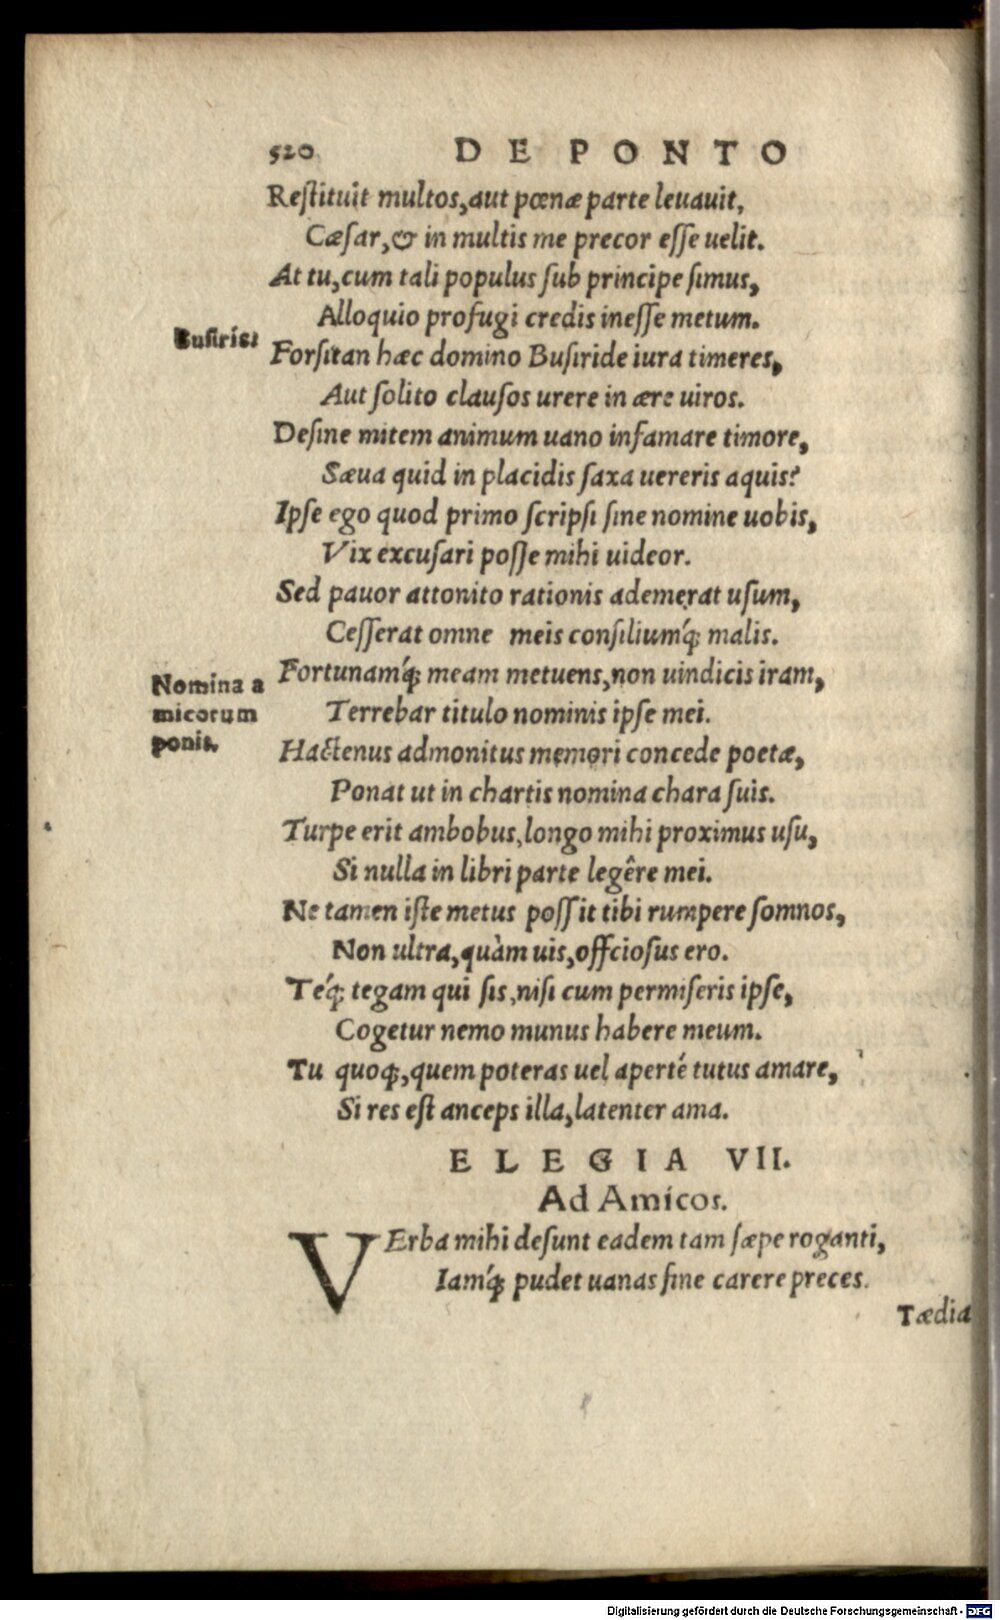 520 DE PONTO
Reſtituit multos, aut pœnæ parte leuauit,
Cæſar, & in multis me precor eſſe uelit.
At tu, cum tali populus ſub principe ſimus,
Alloquio profugi credis ineſſe metum.
Buſiris:
Forſitan hæc domino Buſiride iura timeres,
Aut ſolito clauſos urere in ære uiros.
Deſine mitem animum uano infamare timore,
Sæua quid in placidis ſaxa uereris aquis?
Ipſe ego quod primo ſcripſi ſine nomine uobis,
Vix excuſari poſſe mihi uideor.
Sed pauor attonito rationis ademerat uſum,
Ceſſerat omne meis conſiliumq́; malis.
Nomina a
micorum
ponit.
Fortunamq́; meam metuens, non uindicis iram,
Terrebar titulo nominis ipſe mei.
Hactenus admonitus memori concede poetæ,
Ponat ut in chartis nomina chara ſuis.
Turpe erit ambobus, longo mihi proximus uſu,
Si nulla in libri parte legêre mei.
Ne tamen iſte metus poſſit tibi rumpere ſomnos,
Non ultra, quàm uis, offciosus ero.
Téq́; tegam qui ſis, niſi cum permiſeris ipſe,
Cogetur nemo munus habere meum.
Tu quoq;, quem poteras uel aperté tutus amare,
Si res eſt anceps illa, latenter ama.
ELEGIA VII.
Ad Amicos.
VErba mihi deſunt eadem tam ſæpe roganti,
Iamq́; pudet uanas fine carere preces.
Tædia
Digitalisierung gefördert durch die Deutsche Forschungsgemeinschaft - DFG